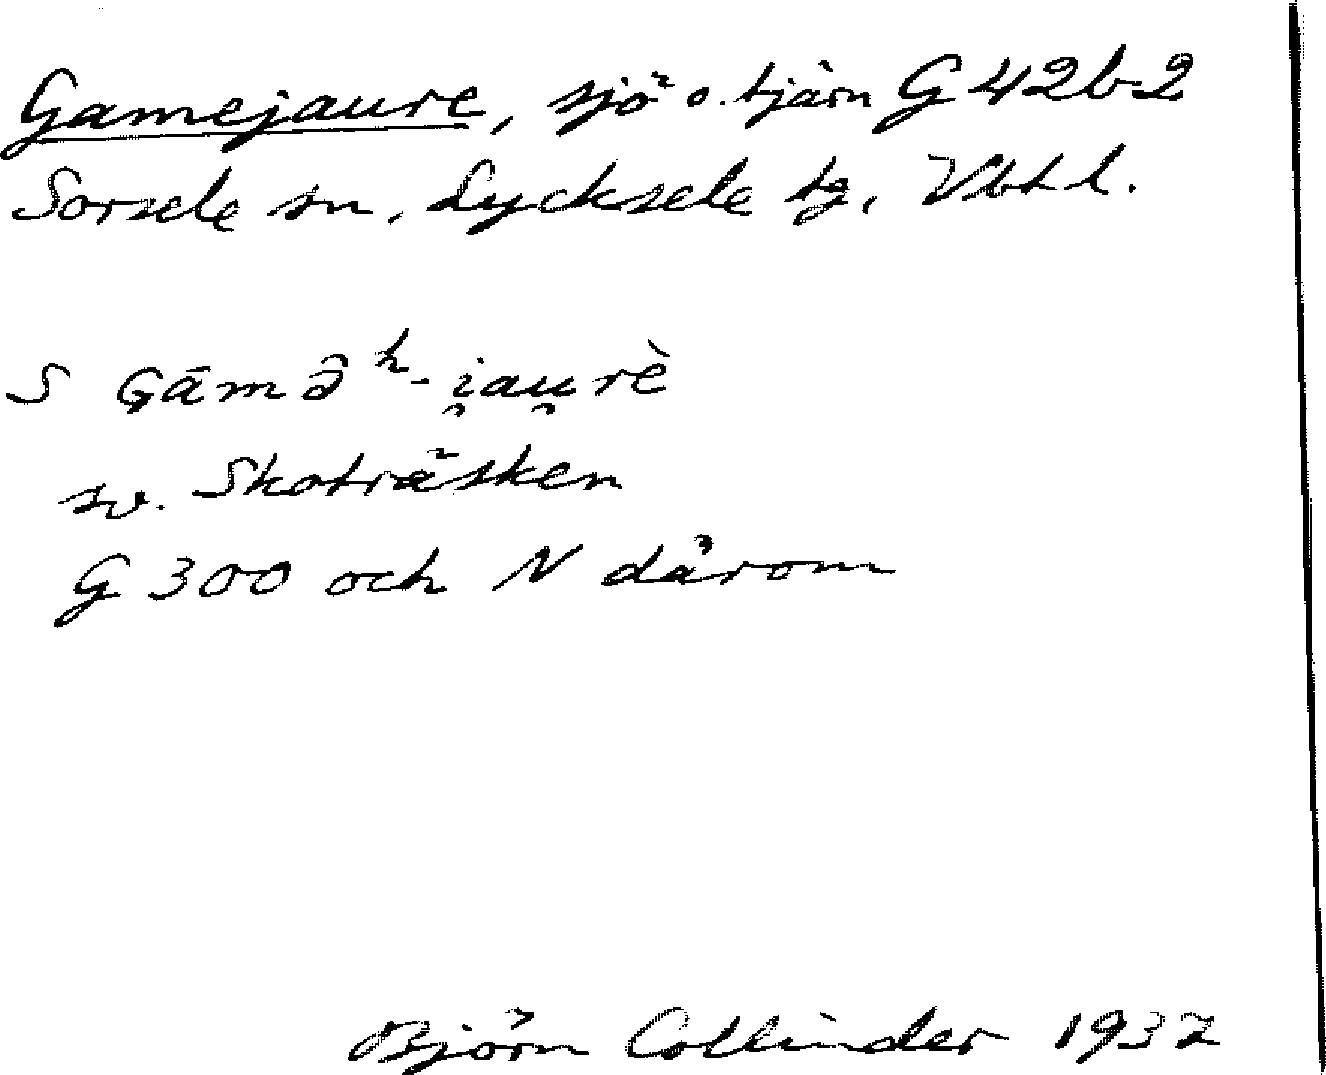 Gamejaure, sjö o. tjärn G 42b2
Sorsele sn, Lycksele tg, Vbt l.
S Gāmə̑ʰ-i̯au̯rè
sv. Skoträsken
G 300 och N därom
Björn Collinder 1937